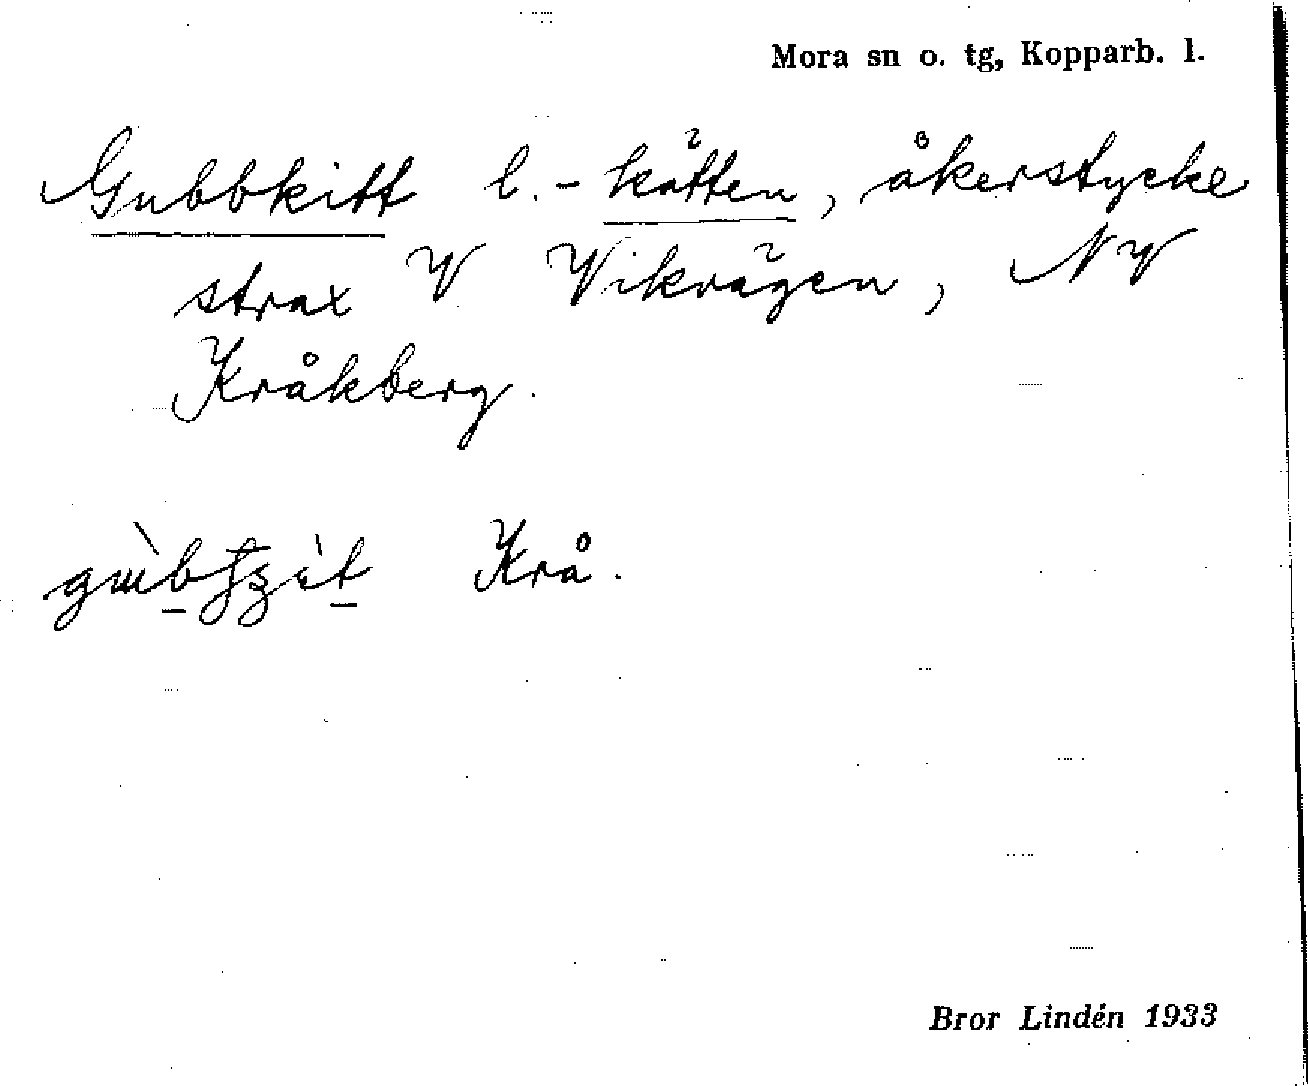 Mora sn o. tg, Kopparb. l.
Gubbkitt l. -kätten, åkerstycke
strax V Vikvägen, NV
Kråkberg.
Krå.
Bror Lindén 1933